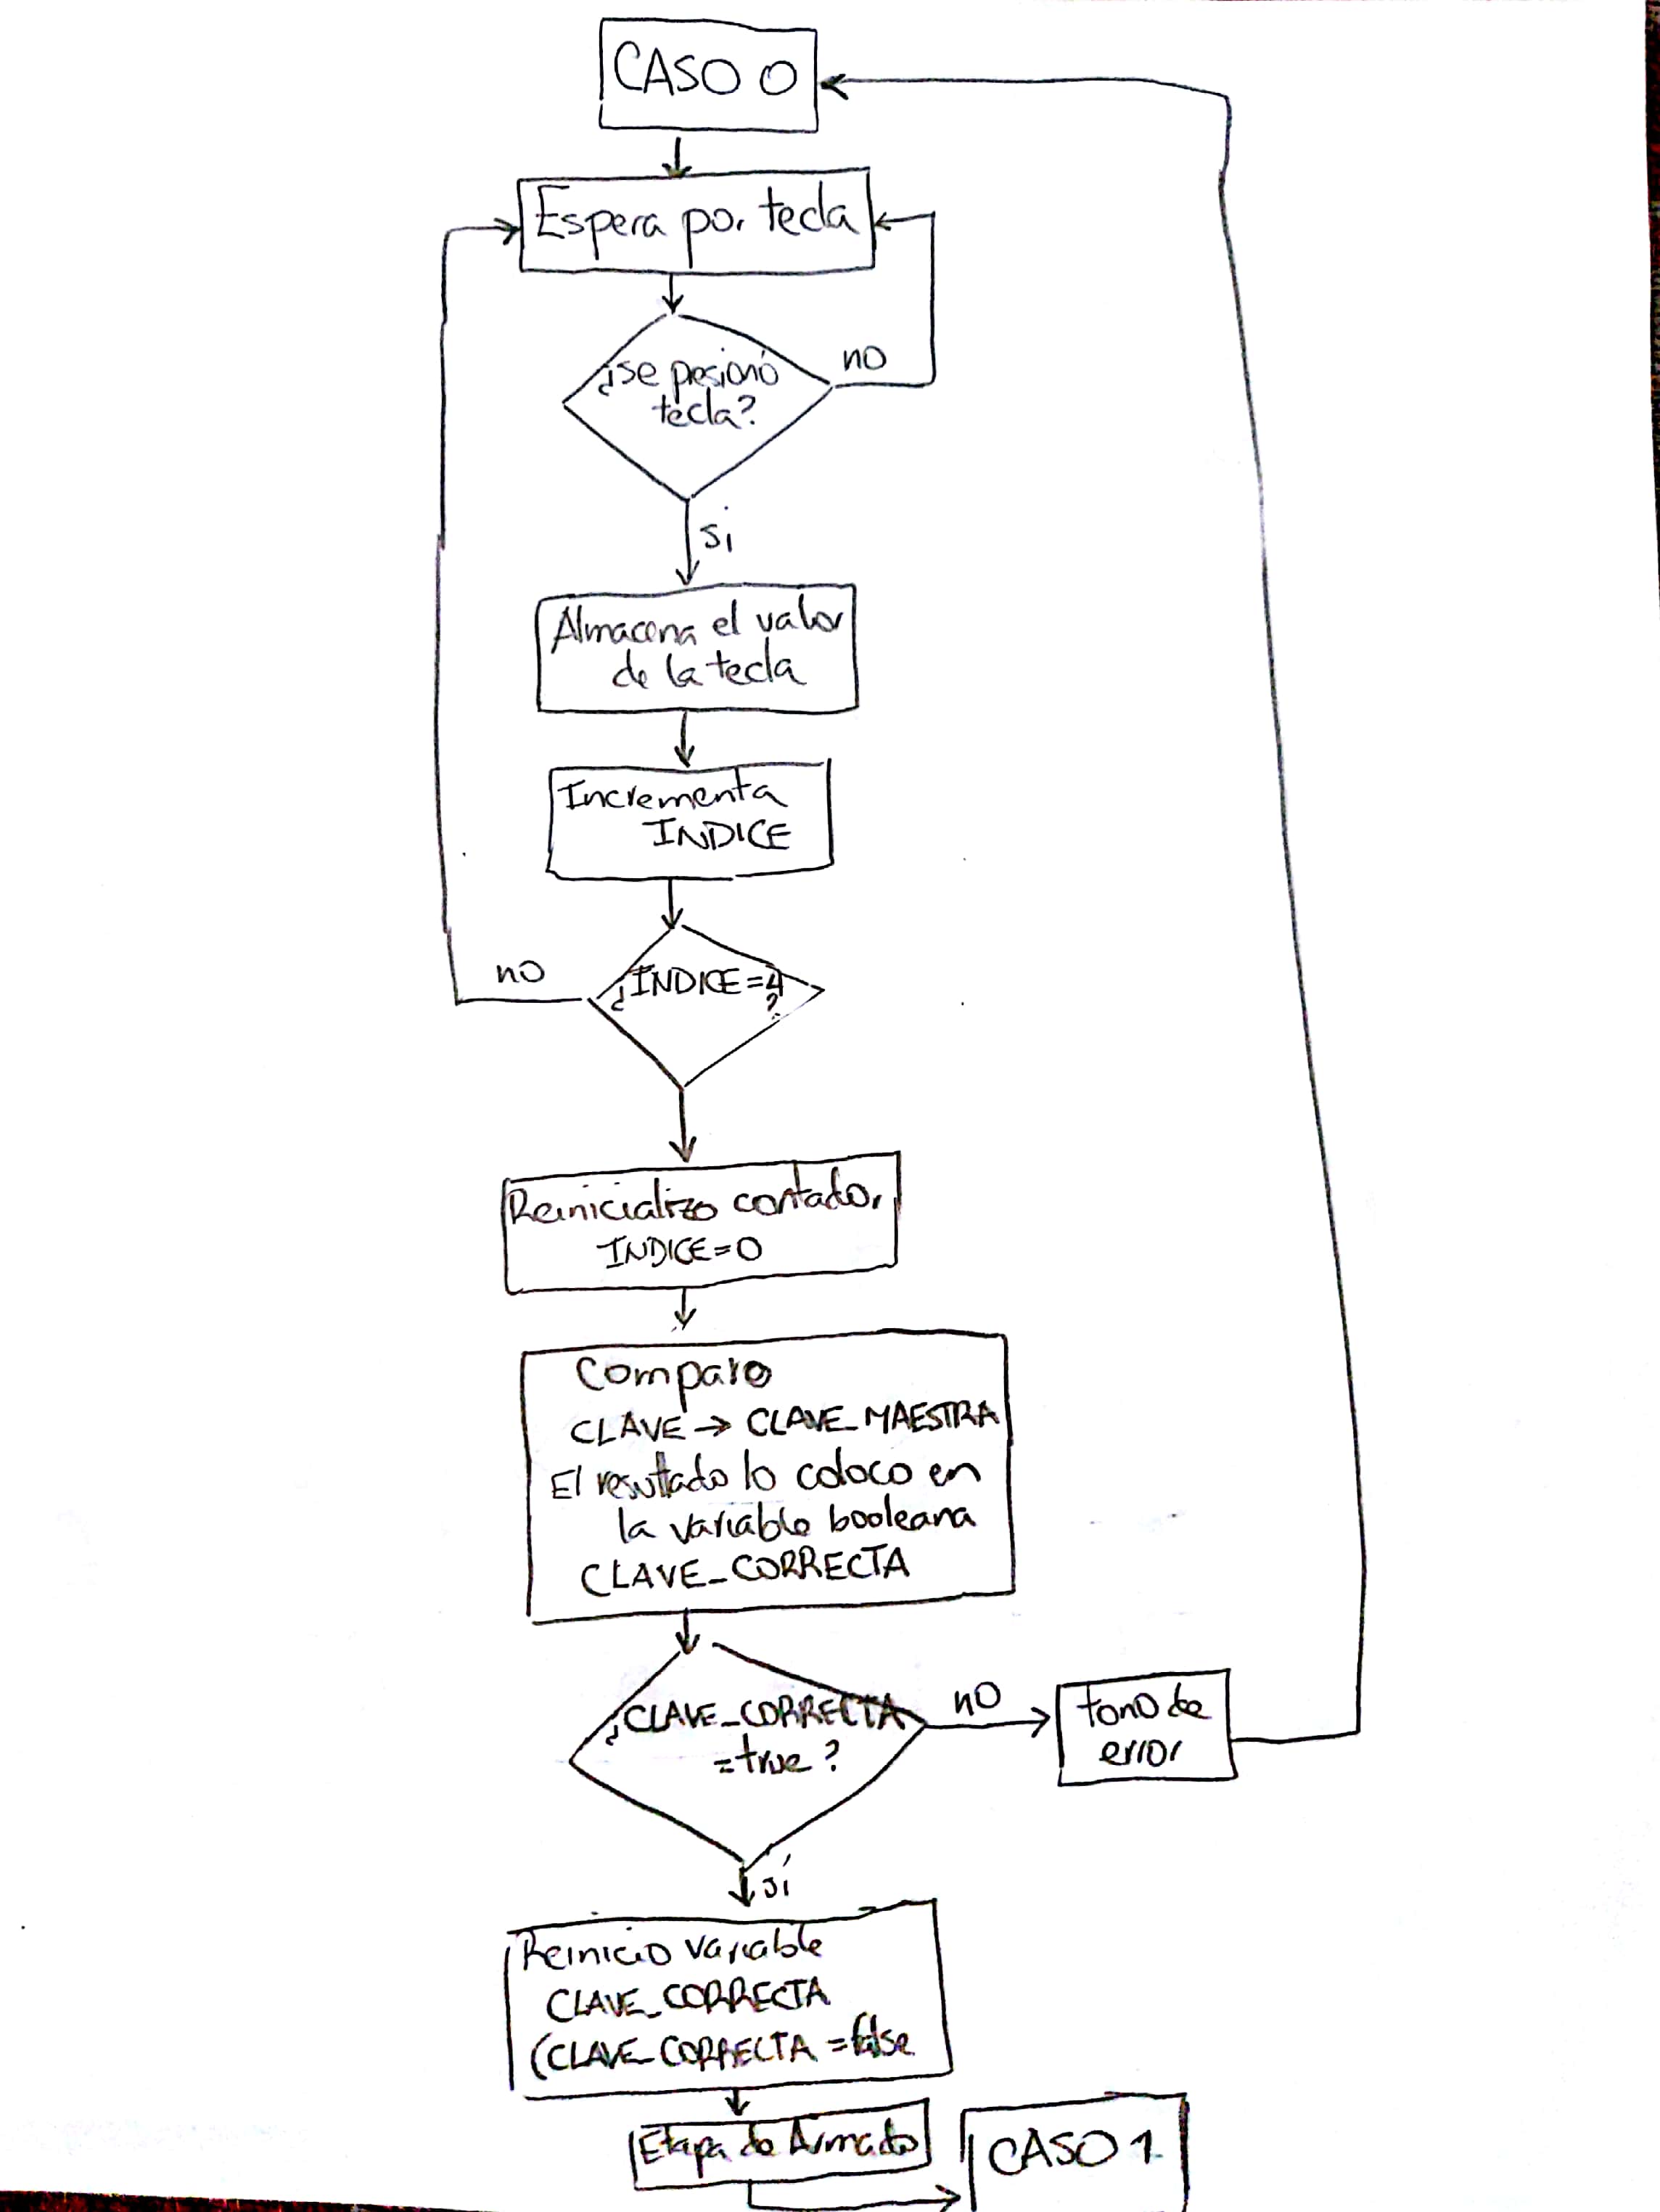 CASO 0
Espera por tecla
¿se presionó
tecla?
no
si
Almacena el valor
de la tecla
Incrementa
INDICE
¿INDICE=4
?
no
Reinicializo contador
INDICE=0
Comparo
CLAVE → CLAVE_MAESTRA
El resultado lo coloco en
la variable booleana
CLAVE_CORRECTA
¿CLAVE_CORRECTA
=true?
no
tono de
error
sí
Reinicio variable
CLAVE_CORRECTA
(CLAVE_CORRECTA = false
Etapa de Armado
CASO 1